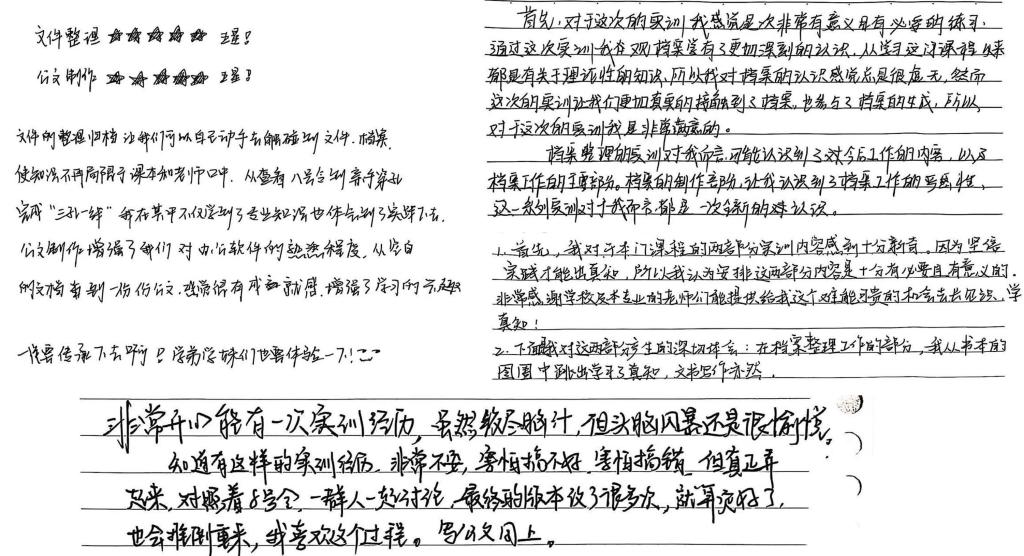 文件整理 ★★★★★ 五星！
公文制作 ★★★★★ 五星！
文件的整理归档让我们可以自己动手去触碰到文件、档案，
使知识不再局限于课本和老师口中，从查看八号令到亲手穿孔
完成“三孔一线”我在其中不仅学到了专业知识也体会到了实践下去，
公文制作增强了我们对办公软件的熟悉程度，从空白
的文档再到一份份公文，感觉很有成就感，增强了学习的兴趣
一定要传承下去啊！学弟学妹们也要体验一下！
首先，对于这次的实训我感觉是次非常有意义且有必要的练习，
通过这次实训我在对档案学有了更加深刻的认识，从学习这门课程以来
都是有关于理论性的知识，所以我对档案的认识感觉总是很虚无，然而
这次的实训让我们更加真实的接触到了档案，也参与了档案的生成，所以
对于这次的实训我是非常满意的。
档案整理的实训对我而言，可能认识到了对今后工作的内容，以及
档案工作的主要部分。档案的制作部分，让我认识到了档案工作的严恳性，
这一系列实训对于我而言都是一次全新的认识。
1. 首先，我对于本门课程的两部分实训内容感到十分新奇。因为坚信
实践才能出真知，所以我认为安排这两部分内容是十分有必要且有意义的。
非常感谢学校及本专业的老师们能提供给我这个难能可贵的机会去长知识，学
真知！
2. 下面是我对这两部分产生的深切体会：在档案整理工作的部分，我从书本的
囹圄中跳出学习了真知，文书写作亦然。
非常开心能有一次实训经历，虽然绞尽脑汁，但头脑风暴还是很愉悦。
知道有这样的实训经历，非常不安，害怕搞不好，害怕搞错，但真正弄
起来，对照着8号令，一群人一起讨论，最终的版本改了很多次，就算页好了，
也会推倒重来，我喜欢这个过程。写公文同上。